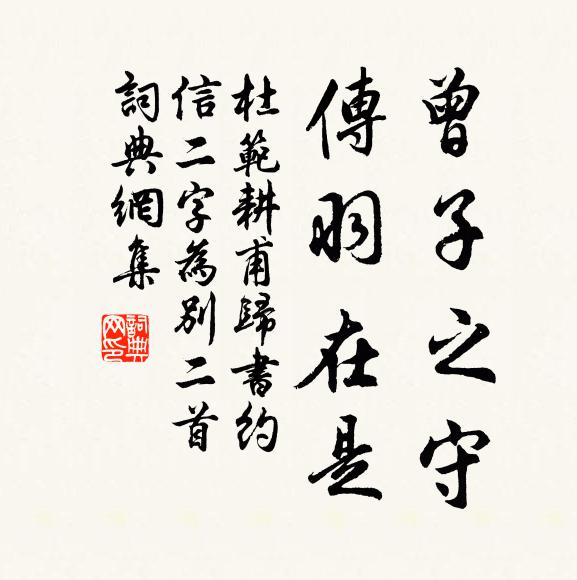 曾子之守
傳羽在是
杜範耕甫歸書約
信二字為別二首
詞典網集
詞典
网印